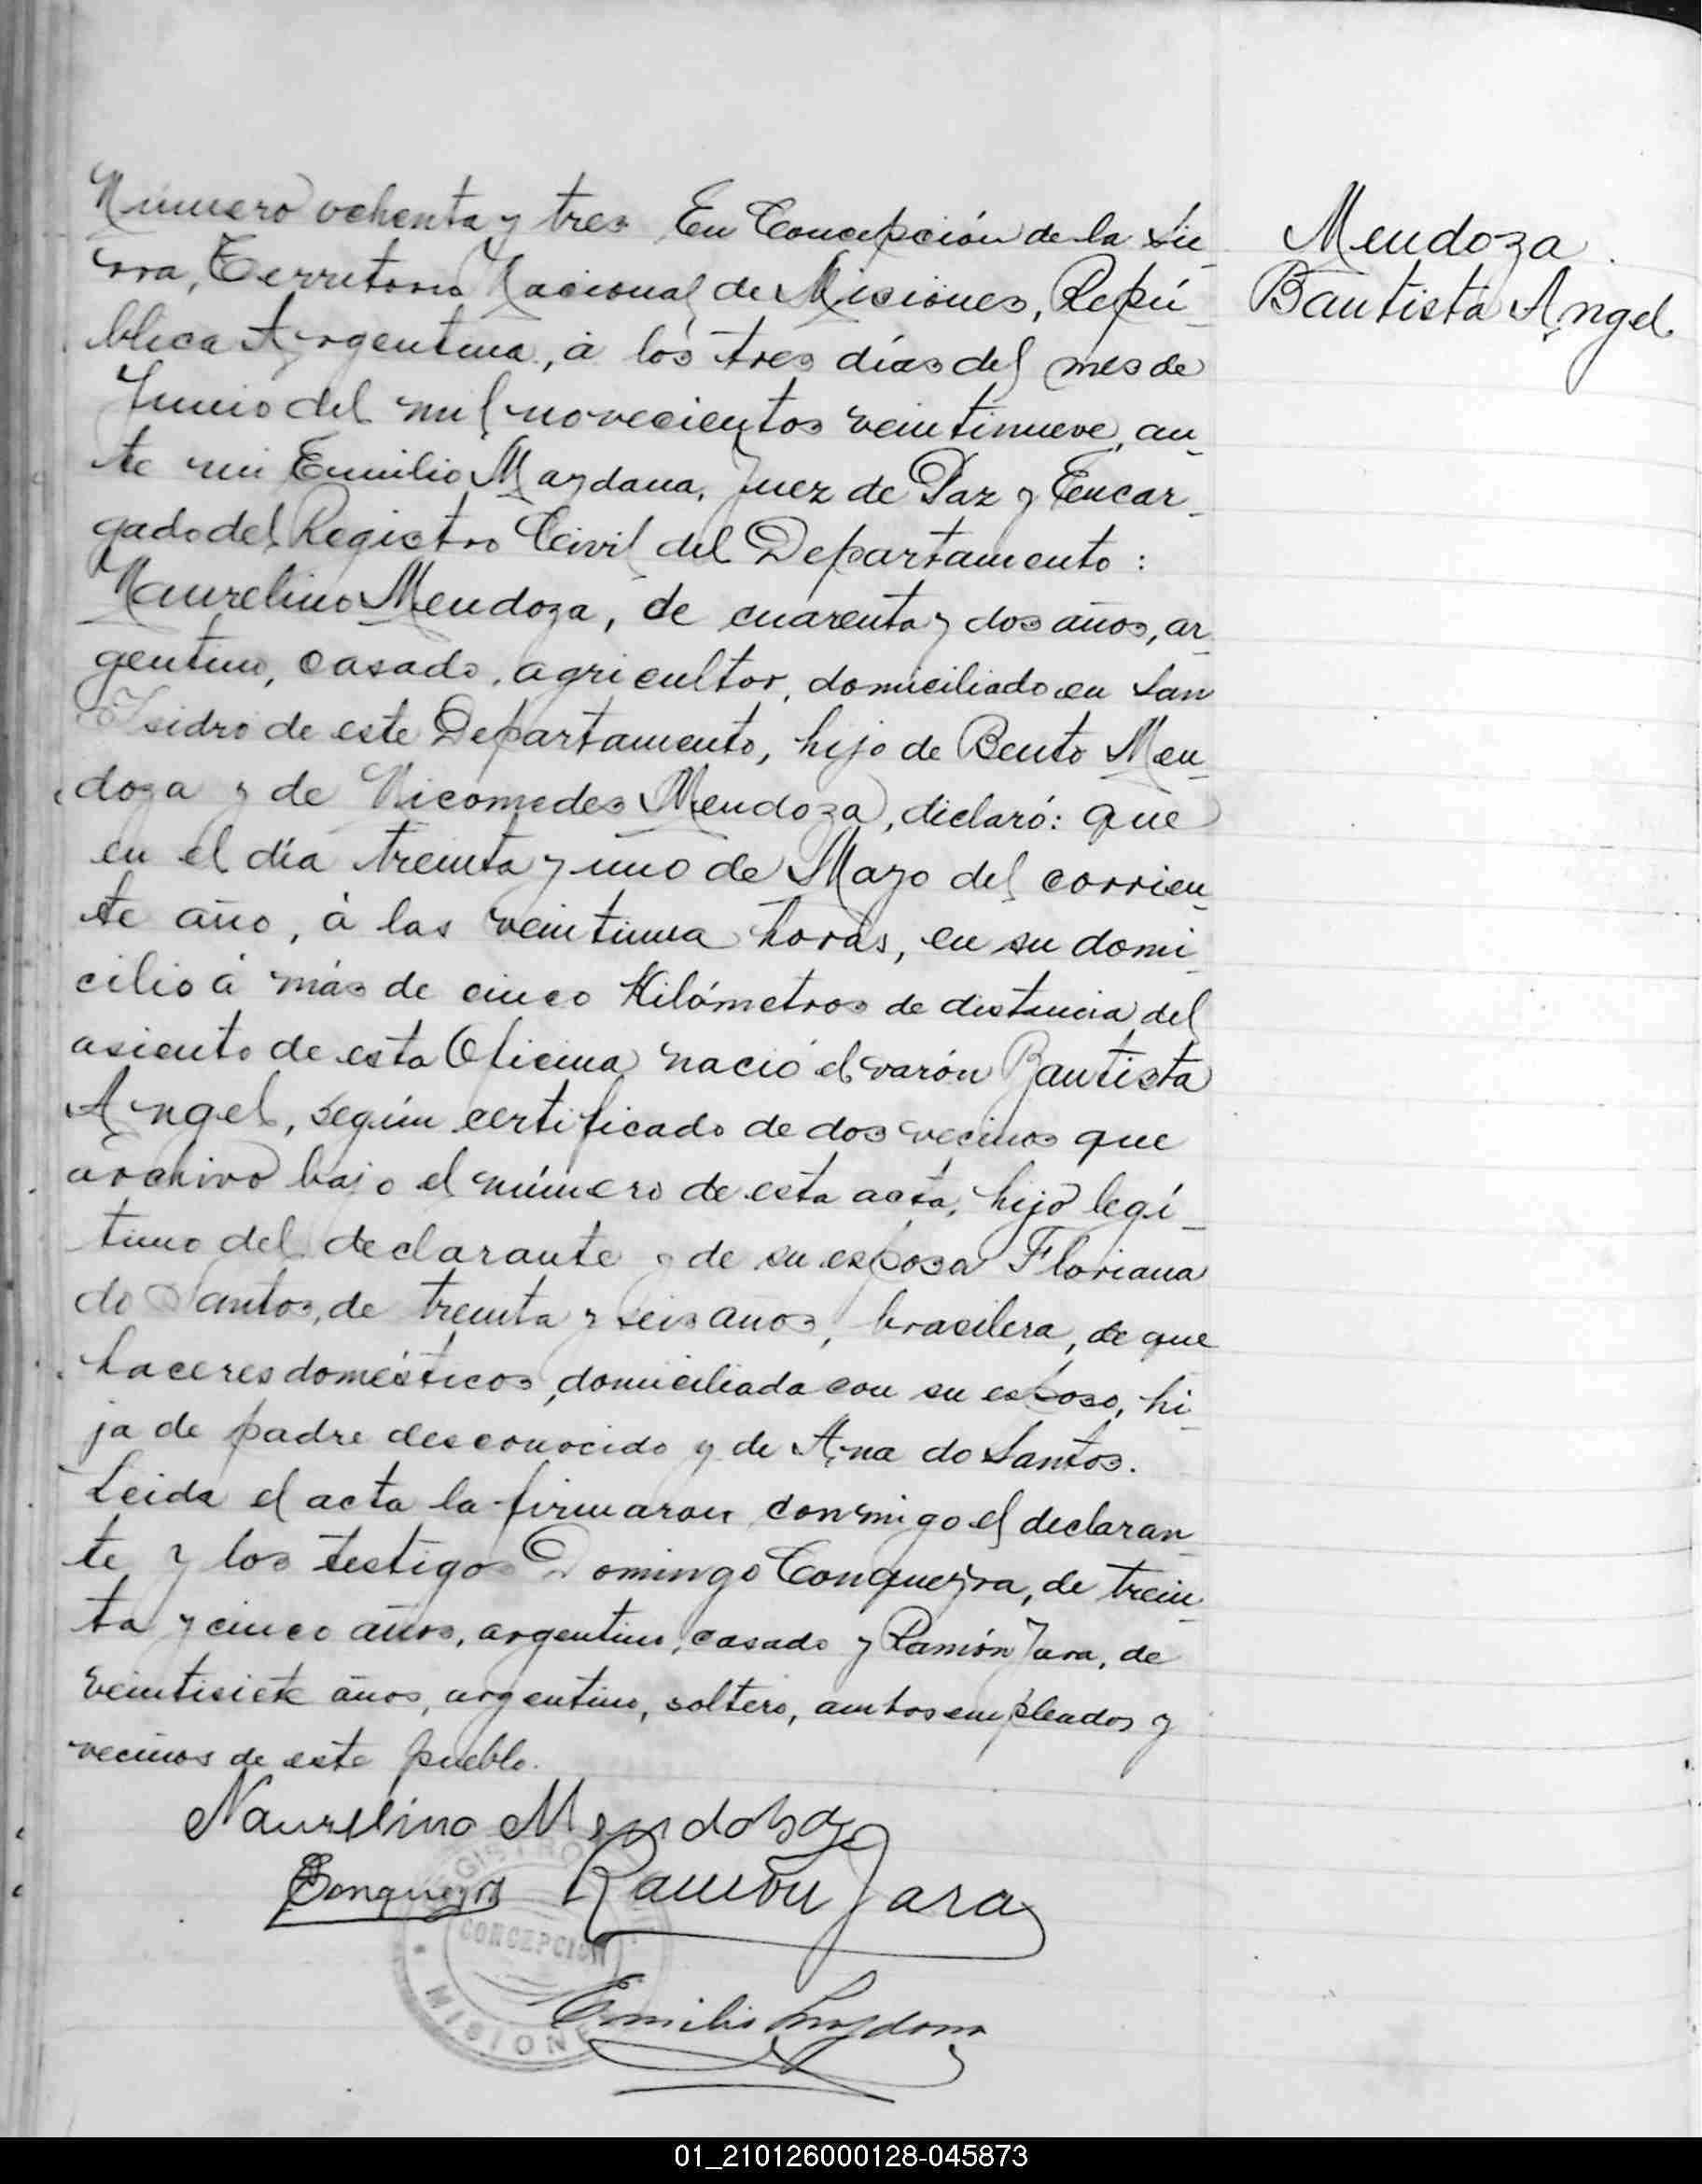 Número ochenta y tres En Concepción de la Sie-
rra, Territorio Nacional de Misiones, Repú-
blica Argentina, á los tres días del mes de
Junio del mil novecientos veintinueve, an-
te mi Emilio Maydana, Juez de Paz y Encar-
gado del Registro Civil del Departamento:
Naurelino Mendoza, de cuarenta y dos años, ar-
gentino, casado, agricultor, domiciliado en San
Isidro de este Departamento, hijo de Bento Men-
doza y de Nicomedes Mendoza, declaró: que
en el día treinta y uno de Mayo del corrien-
te año, á las veintiuna horas, en su domi-
cilio á más de cinco Kilómetros de distancia del
asiento de esta Oficina nació el varón Bautista
Angel, según certificado de dos vecinos que
archivo bajo el número de esta acta, hijo legí-
timo del declarante y de su esposa Floriana
do Santos, de treinta y seis años, brasilera, de que
haceres domésticos, domiciliada con su esposo, hi-
ja de padre desconocido y de Ana do Santos.
Leida el acta la firmaron conmigo el declaran-
te y los testigos Domingo Conqueyra, de trein-
ta y cinco años, argentino, casado y Ramón Jara, de
veintisiete años, argentino, soltero, ambos empleados y
vecinos de este pueblo.
Mendoza
Bautista Angel
Naurelino Mendoza
Ramón Jara
REGISTRO
CONCEPCION
MISIONES
Emilio Maydana
01_210126000128-045873